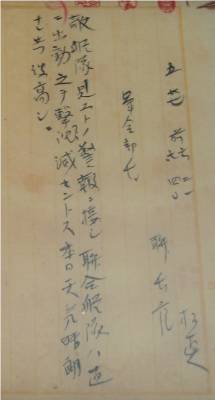 聯長官
軍令部長
敵艦隊見ユトノ警報ニ接シ聯合艦隊ハ直
ニ出動之ヲ撃沈滅セントス本日天気晴朗
ナレ共波高シ